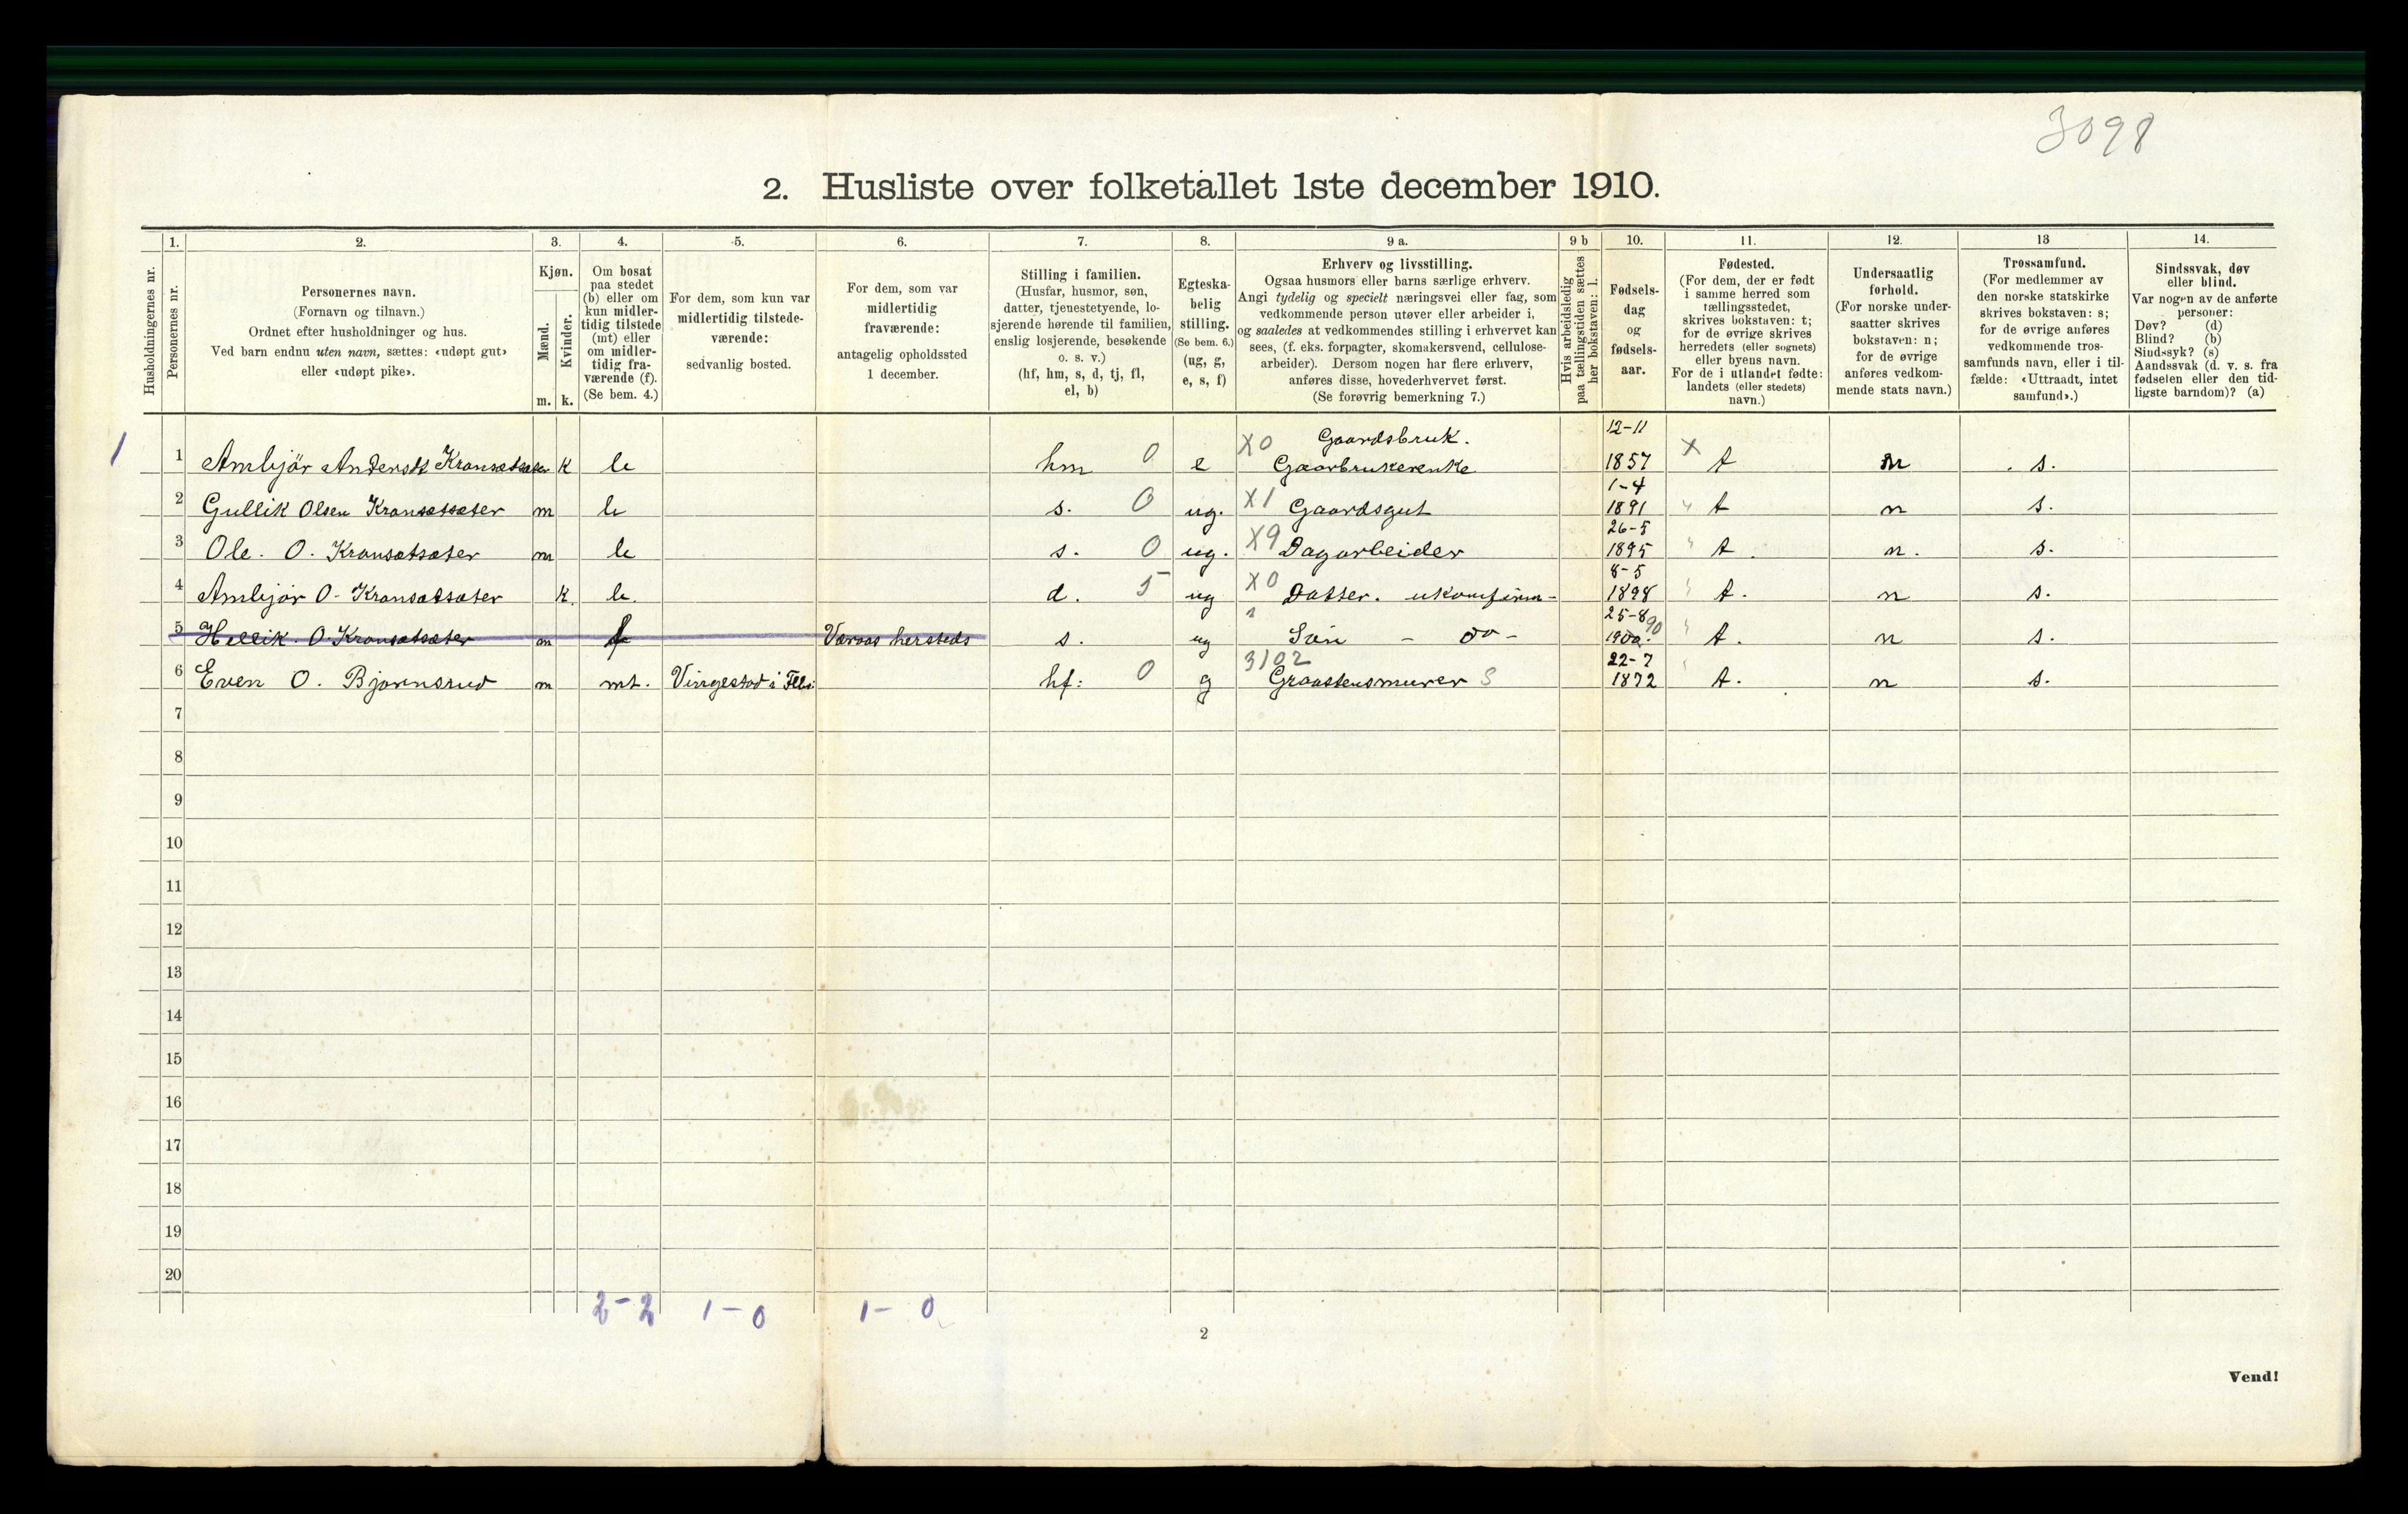 3098
2. Husliste over folketallet 1ste december 1910.
1. 2. 3. 4. 5. 6. 7. 8. 9 a. 9 b 10. 11. 12. 13 14.
Husholdningernes nr.
Personernes nr.
Personernes navn.
(Fornavn og tilnavn.)
Ordnet efter husholdninger og hus.
Ved barn endnu uten navn, sættes: «udøpt gut»
eller «udøpt pike».
Kjøn.
Mænd.
Kvinder.
m. k.
Om bosat
paa stedet
(b) eller om
kun midler-
tidig tilstede
(mt) eller
om midler-
tidig fra-
værende (f).
(Se bem. 4.)
For dem, som kun var
midlertidig tilstede-
værende:
sedvanlig bosted.
For dem, som var
midlertidig
fraværende:
antagelig opholdssted
1 december.
Stilling i familien.
(Husfar, husmor, søn,
datter, tjenestetyende, lo-
sjerende hørende til familien,
enslig losjerende, besøkende
o. s. v.)
(hf, hm, s, d, tj, fl,
el, b)
Egteska-
belig
stilling.
(Se bem. 6.)
(ug, g,
e, s, f)
Erhverv og livsstilling.
Ogsaa husmors eller barns særlige erhverv.
Angi tydelig og specielt næringsvei eller fag, som
vedkommende person utøver eller arbeider i,
og saaledes at vedkommendes stilling i erhvervet kan
sees, (f. eks. forpagter, skomakersvend, cellulose-
arbeider). Dersom nogen har flere erhverv,
anføres disse, hovederhvervet først.
(Se forøvrig bemerkning 7.)
Hvis arbeidsledig
paa tællingstiden sættes
her bokstaven: l.
Fødsels-
dag
og
fødsels-
aar.
Fødested.
(For dem, der er født
i samme herred som
tællingsstedet,
skrives bokstaven: t;
for de øvrige skrives
herredets (eller sognets)
eller byens navn.
For de i utlandet fødte:
landets (eller stedets)
navn.)
Undersaatlig
forhold.
(For norske under-
saatter skrives
bokstaven: n;
for de øvrige
anføres vedkom-
mende stats navn.)
Trossamfund.
(For medlemmer av
den norske statskirke
skrives bokstaven: s;
for de øvrige anføres
vedkommende tros-
samfunds navn, eller i til-
fælde: «Uttraadt, intet
samfund».)
Sindssvak, døv
eller blind.
Var nogen av de anførte
personer:
Døv? (d)
Blind? (b)
Sindssyk? (s)
Aandssvak (d. v. s. fra
fødselen eller den tid-
ligste barndom)? (a)
X0 Gaardsbruk. 12-11
1 1 Ambjör Andersdt Kransetsæter k b hm 0 e Gaarbrukerenke 1857 X t n s.
1-4
2 Gullik Olsen Kransetsæter m b s. 0 ug. X1 Gaardsgut 1891 t n s.
26-5
3 Ole. O. Kransetsæter m b s. 0 ug. X9 Dagarbeider 1895 t n. s.
8-5
4 Ambjör O- Kransetsæter k. b. d. 5 ug X0 Datter. ukonfirm- 1898 t. n s.
25-8 90
5 Hellik. O. Kransetsæter m f Væraas hersteds s. ug Sön - do- 1900. t. n s.
3102 22-7
6 Even O. Bjørnsrud m mt. hf: 0 g Graastensmurer S 1872 t. n s.
7
8
9
10
11
12
13
14
15
16
17
18
19
20
2-2 1-0 1-0
2
Vend!